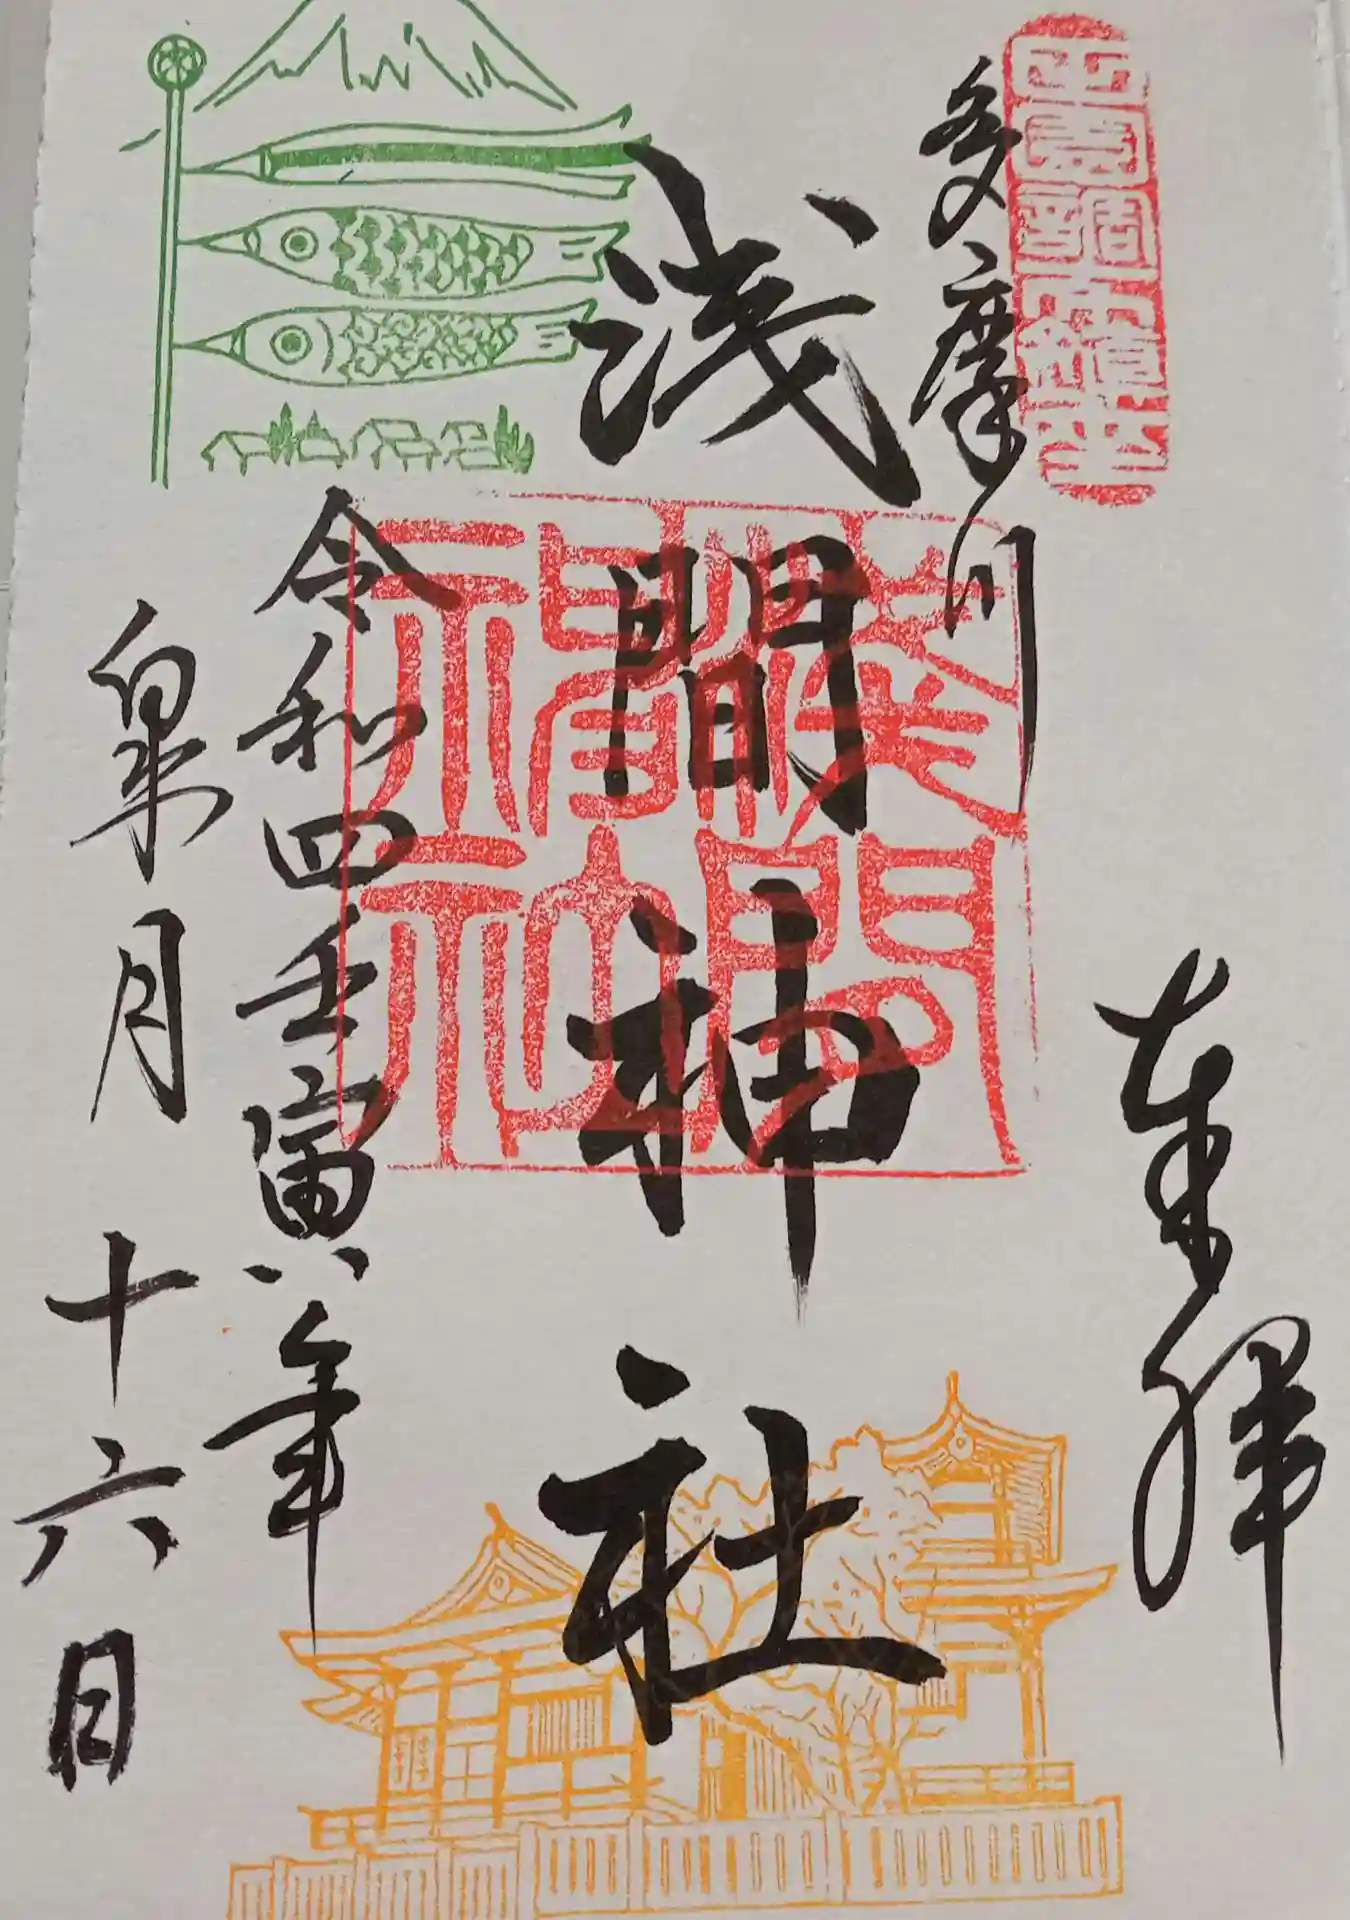 奉拝
多摩川
浅間神社
令和四壬寅年
皐月十六日